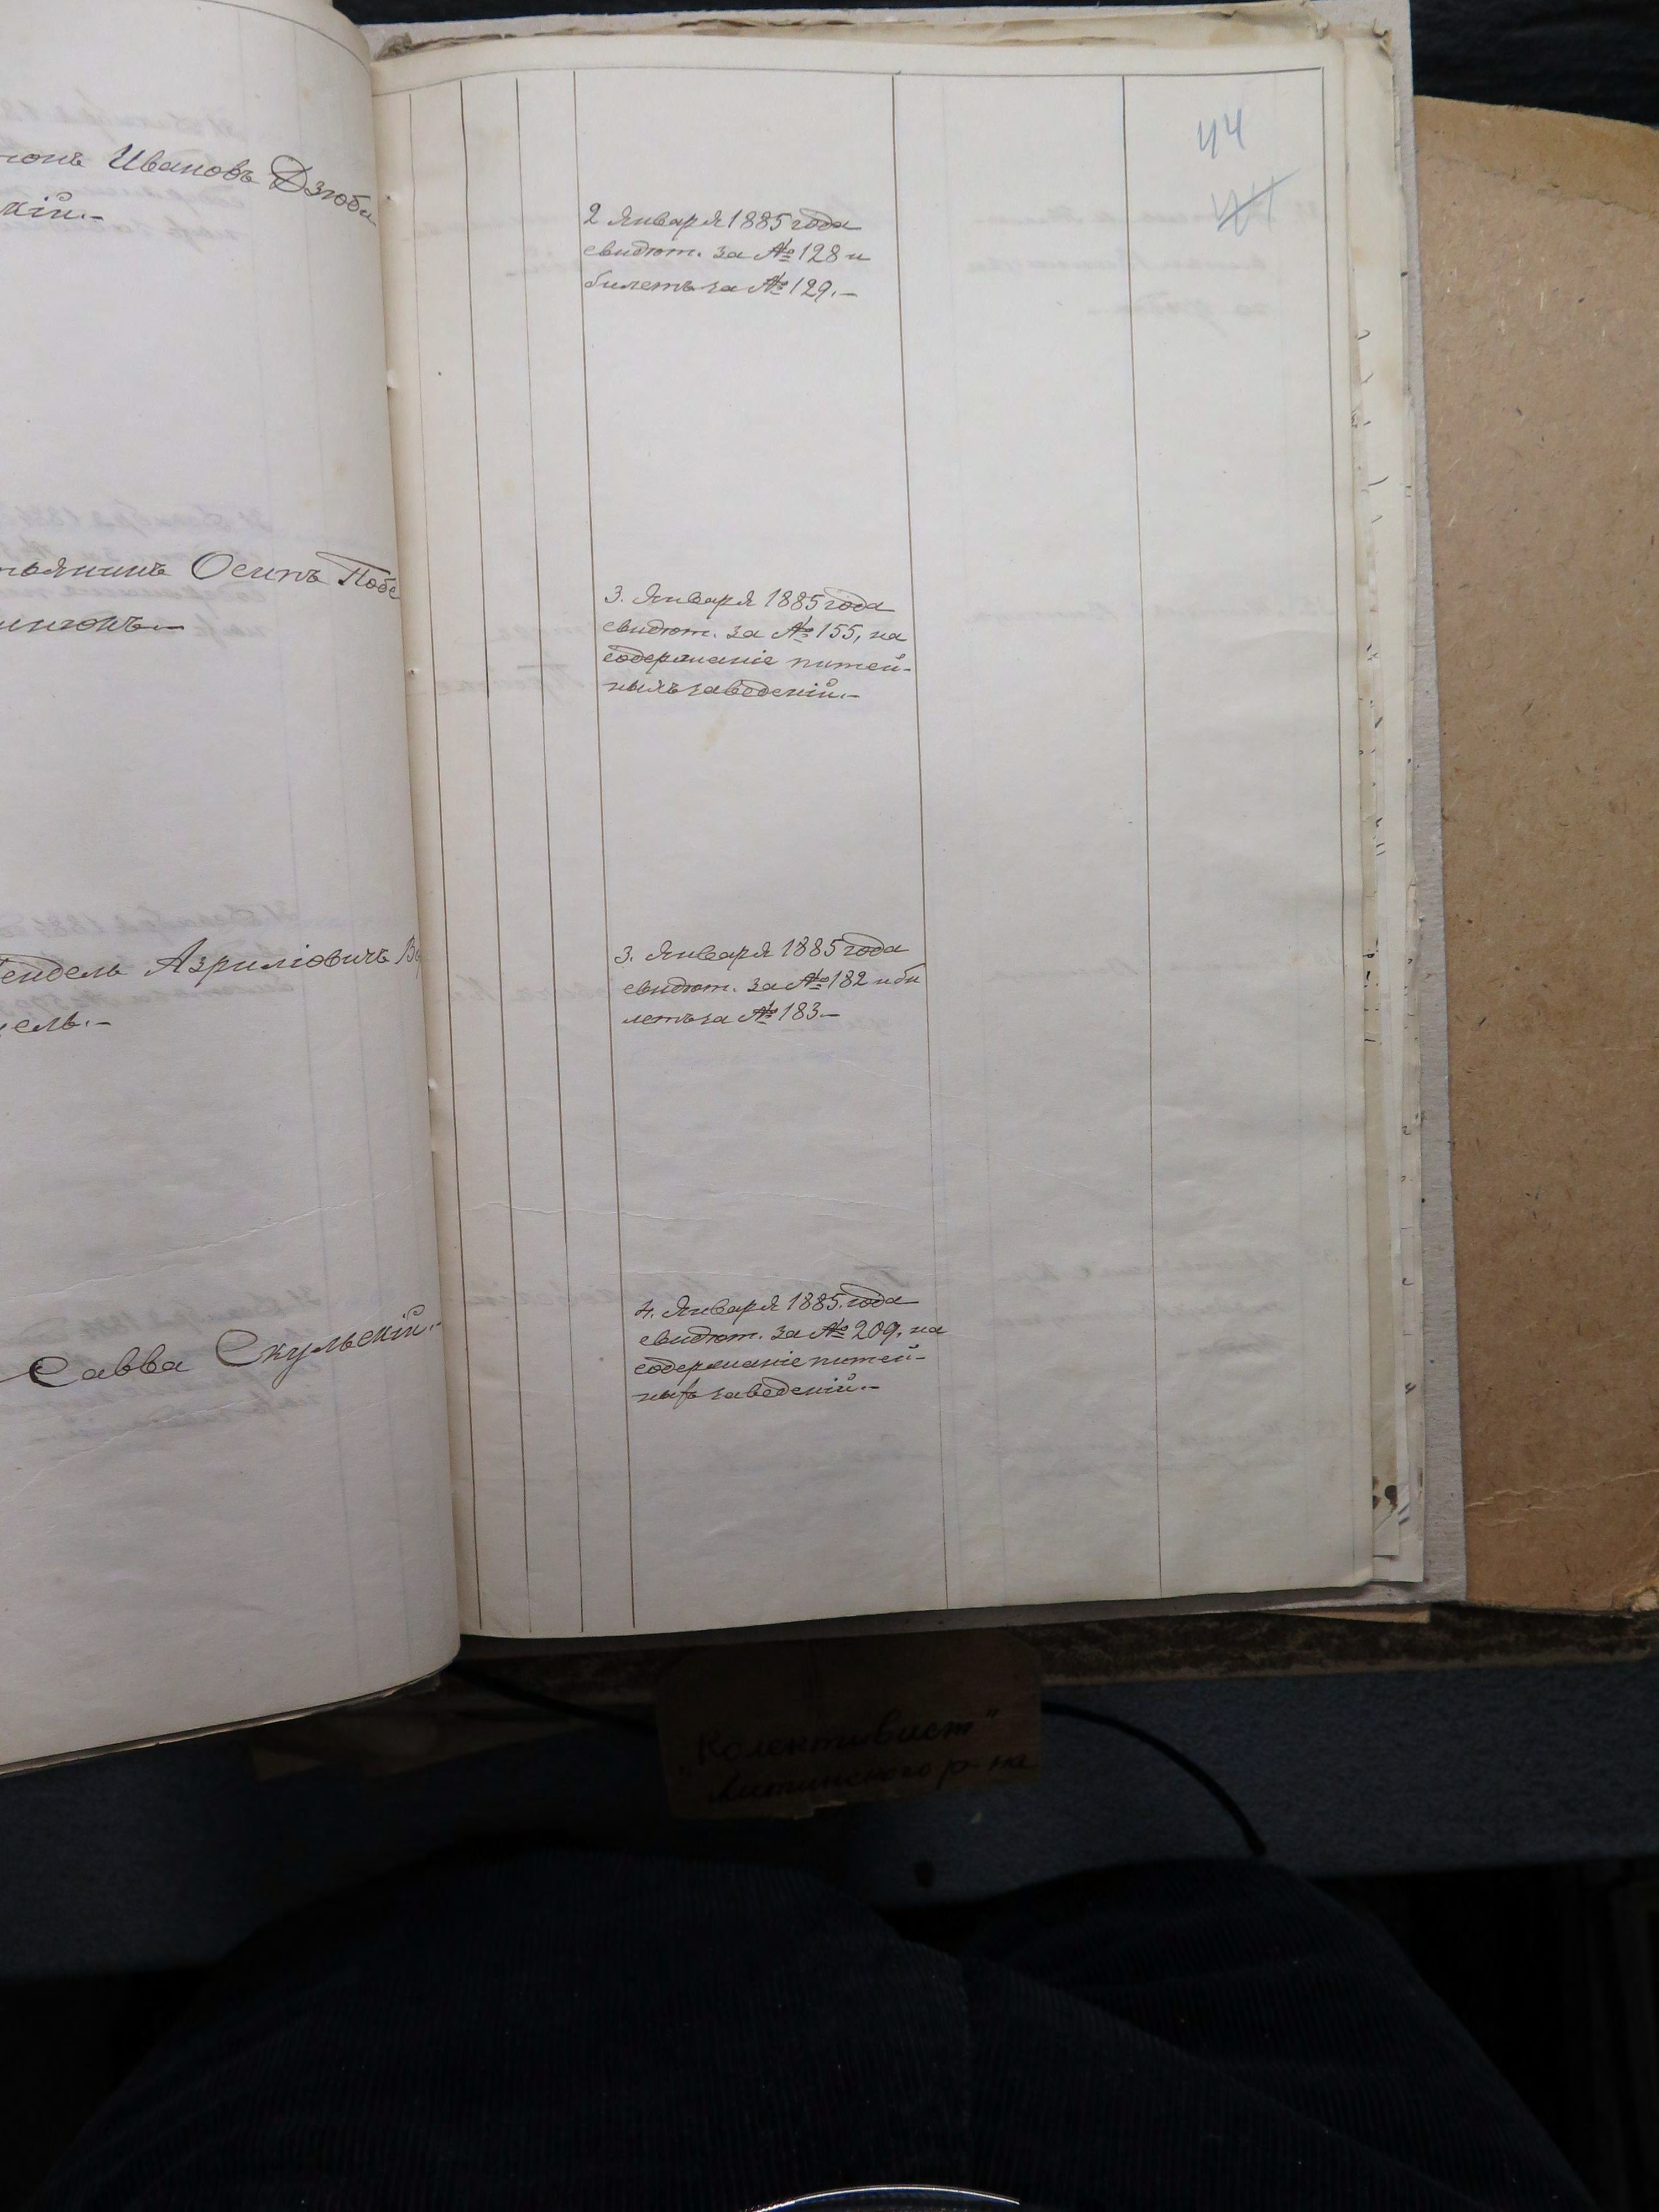 Ивановъ Дзюби
кій.-
Осипъ Побе
Азриліовичъ
ель.-
Савва Скульскій.-
44
2 Января 1885 года
свидѣт. за № 128 и
билетъ за № 129.-
3. Января 1885 года
свидѣт. за № 155, на
содержаніе питей-
ныхъ заведеній.-
3. Января 1885 года
свидѣт. за № 182 и би
летъ за № 183-
4. Января 1885. года
свидѣт. за № 209, на
содержаніе питей-
ныхъ заведеній.-
"Колективист"
Литинского р-на